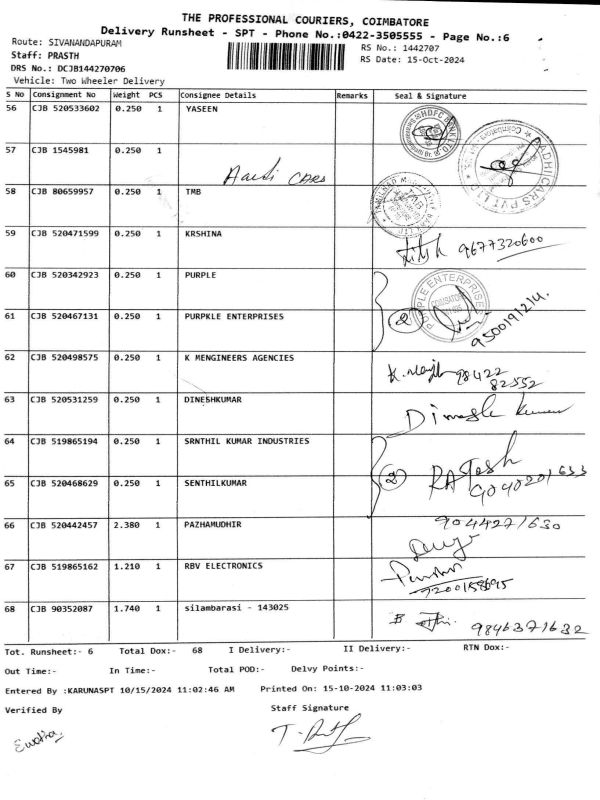 THE PROFESSIONAL COURIERS, COIMBATORE
Delivery Runsheet - SPT - Phone No.:0422-3505555 - Page No.:6
Route: SIVANANDAPURAM
RS No.: 1442707
Staff: PRASTH
RS Date: 15-Oct-2024
DRS No.: DCJB144270706
Vehicle: Two Wheeler Delivery
S No Consignment No Weight PCS Consignee Details Remarks Seal & Signature
56 CJB 520533602 0.250 1 YASEEN
HDFC BANK LTD
57 CJB 1545981 0.250 1
CARS
ADHI CARS PVT LTD
Coimbatore
58 CJB 80659957 0.250 1 TMB
59 CJB 520471599 0.250 1 KRSHINA
9677320600
60 CJB 520342923 0.250 1 PURPLE
PURPLE ENTERPRISES
61 CJB 520467131 0.250 1 PURPKLE ENTERPRISES
2
9500191214
62 CJB 520498575 0.250 1 K MENGINEERS AGENCIES
98422
82552
63 CJB 520531259 0.250 1 DINESHKUMAR
64 CJB 519865194 0.250 1 SRNTHIL KUMAR INDUSTRIES
2
65 CJB 520468629 0.250 1 SENTHILKUMAR
66 CJB 520442457 2.380 1 PAZHAMUDHIR
67 CJB 519865162 1.210 1 RBV ELECTRONICS
68 CJB 90352087 1.740 1 silambarasi - 143025
9846371632
Tot. Runsheet:- 6 Total Dox:- 68 I Delivery:- II Delivery:- RTN Dox:-
Out Time:- In Time:- Total POD:- Delvy Points:-
Entered By :KARUNASPT 10/15/2024 11:02:46 AM Printed On: 15-10-2024 11:03:03
Verified By Staff Signature